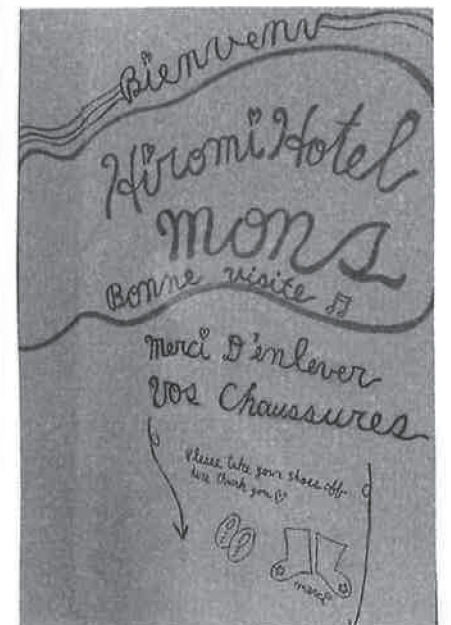 Bienvenu
Hiromi Hotel
mons
Bonne visite
merci D'enlever
vos Chaussures
Please take your shoes off
here thank you
merci